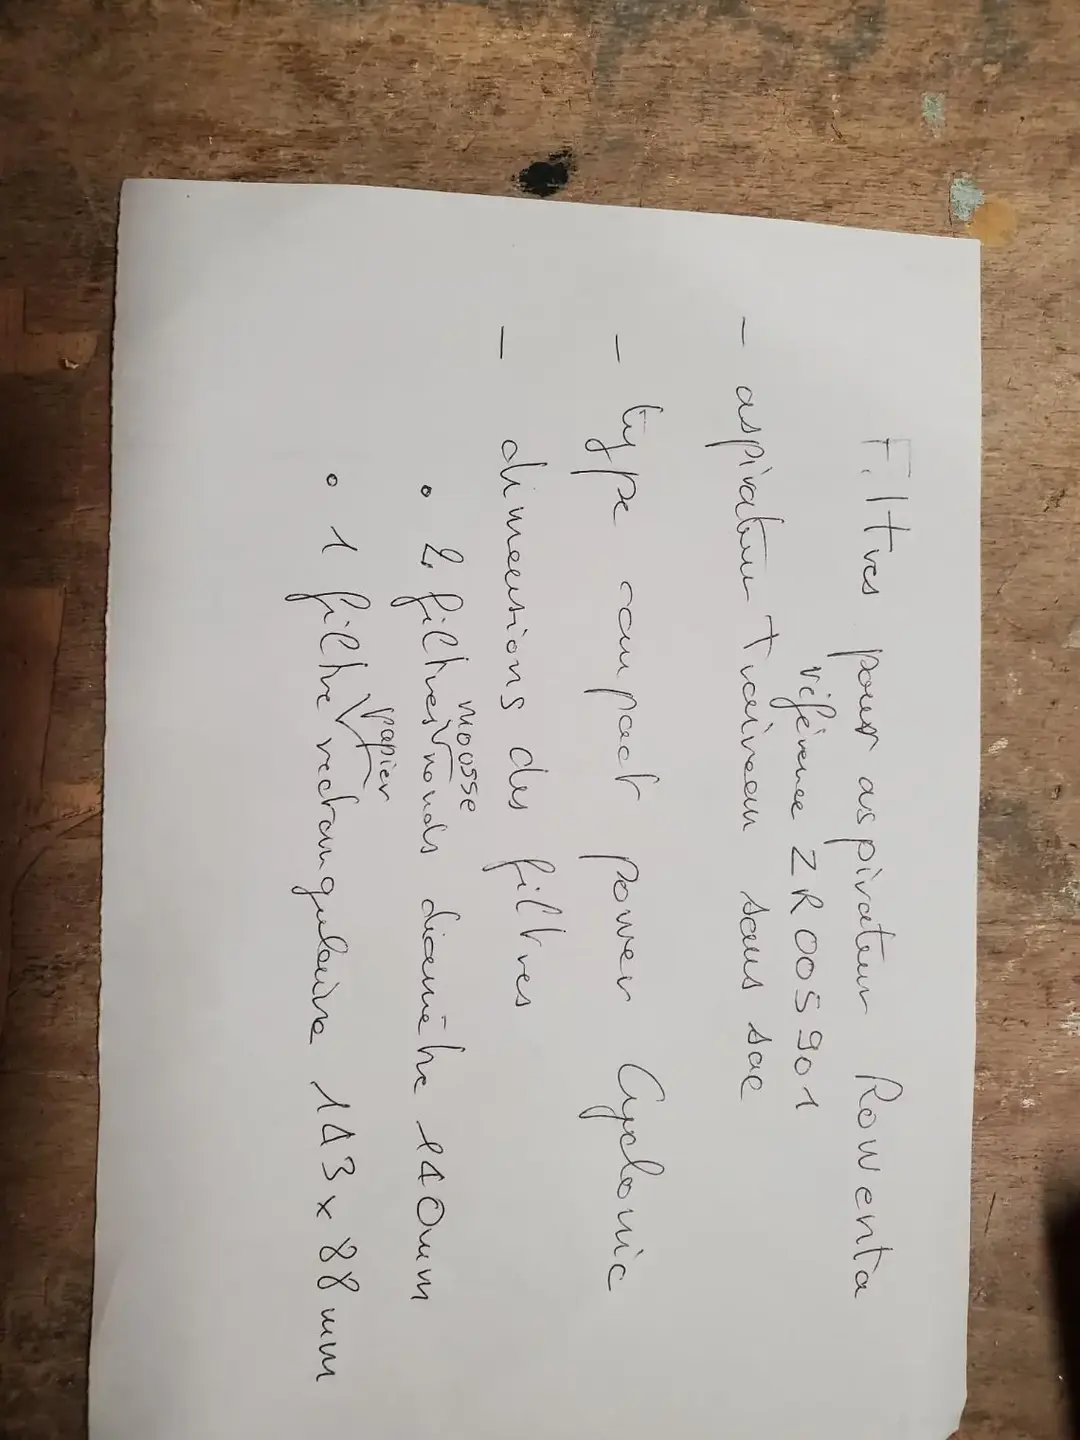 Filtres pour aspirateur Rowenta
référence ZR005901
- aspirateur Traineau sans sac
- type compact power Cyclonic
- dimensions des filtres
mousse
• 2 filtres ronds diamètre 140mm
papier
• 1 filtre rectangulaire 143 x 88 mm